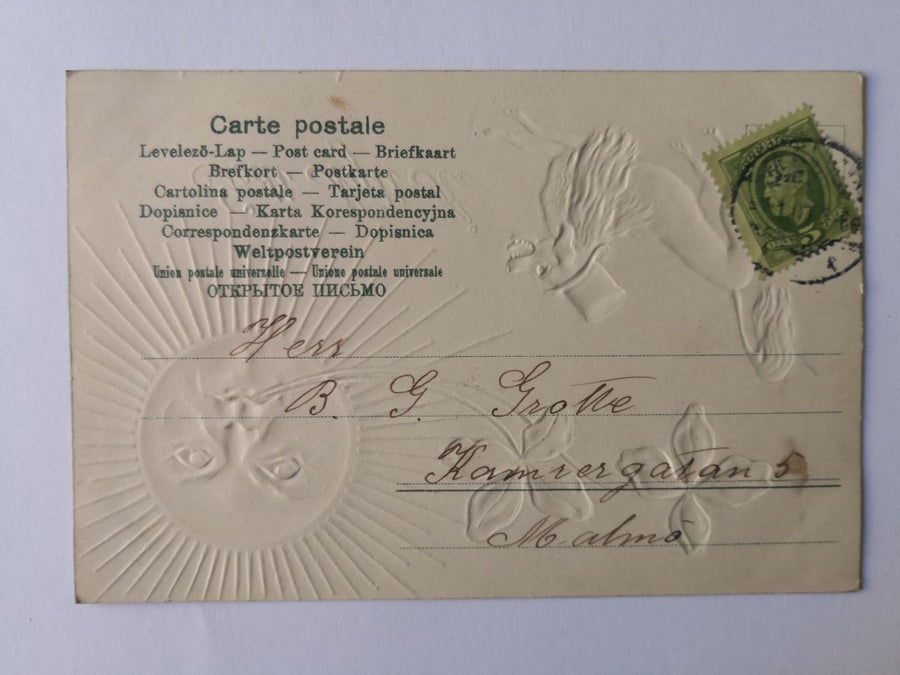 Carte postale
Levelező-Lap — Post card — Briefkaart
Brefkort — Postkarte
Cartolina postale — Tarjeta postal
Dopisnice — Karta Korespondencyjna
Correspondenzkarte — Dopisnica
Weltpostverein
Union postale universelle — Unione postale universale
ОТКРЫТОЕ ПИСЬМО
Herr
B. G Grotte
Kamrergatan 5
Malmö
5